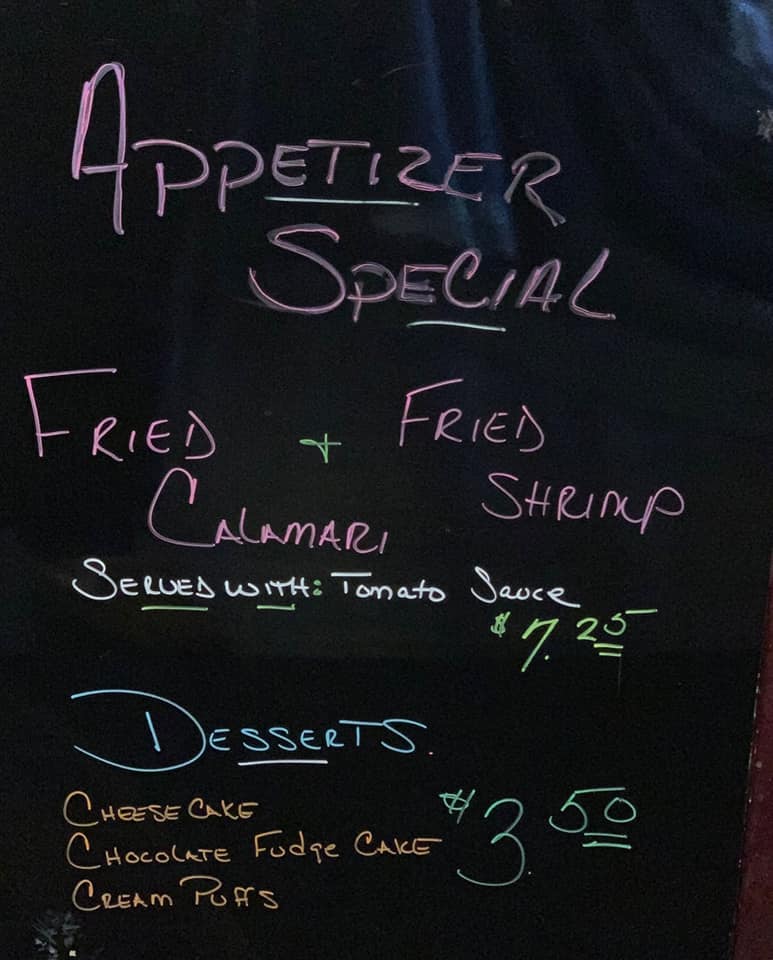 APPETIZER
SPECIAL
FRIED + FRIED
CALAMARI SHRIMP
SERVED WITH: Tomato Sauce
$7.25
DESSERTS.
CHEESE CAKE
CHOCOLATE Fudge CAKE $3.50
CREAM PUFFS